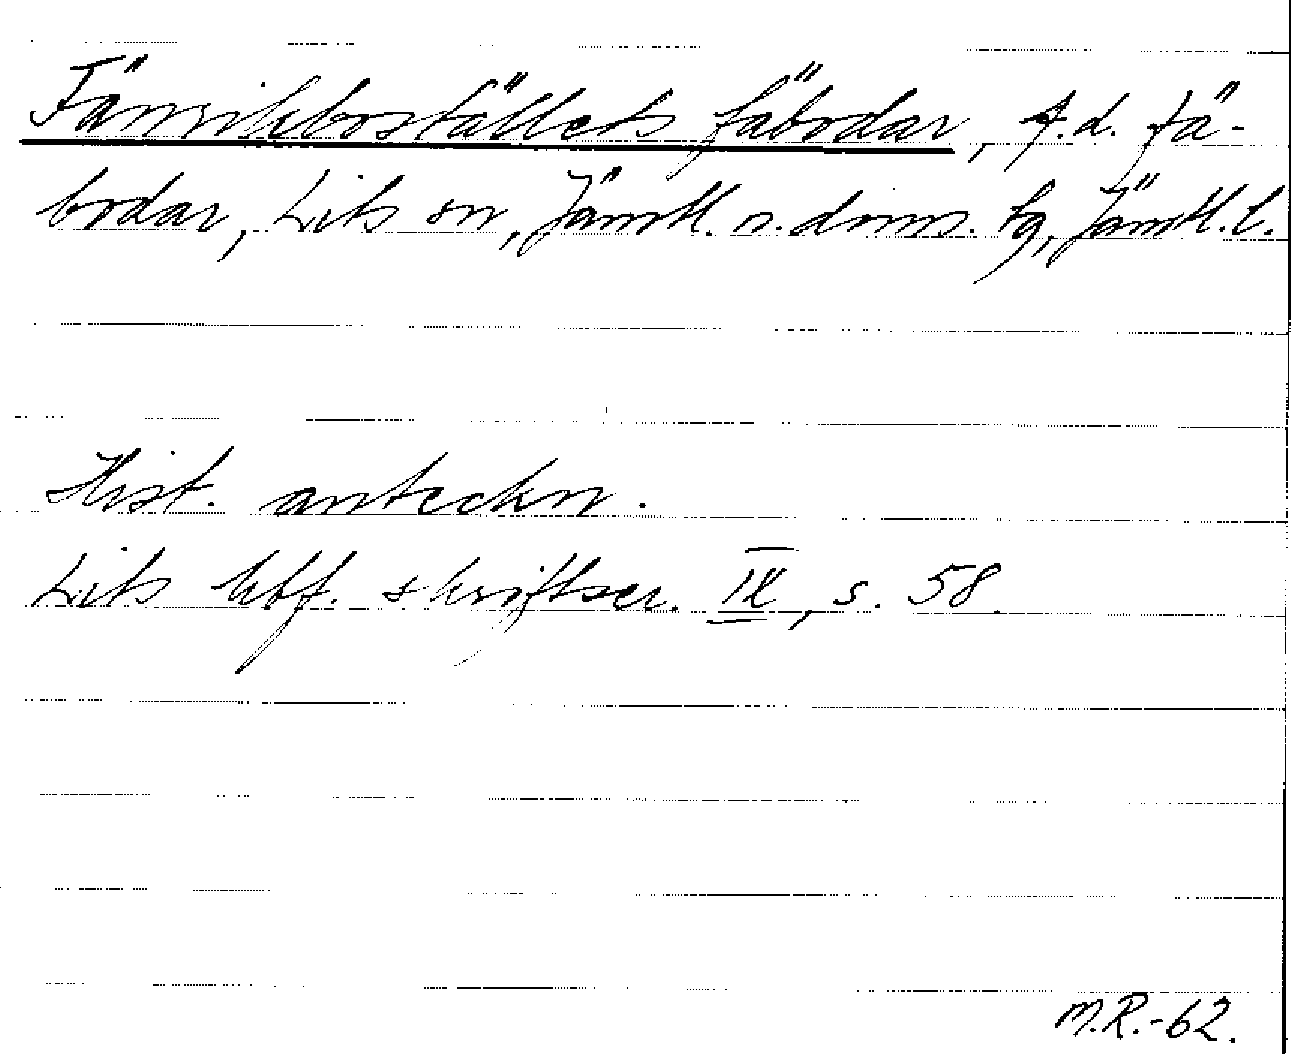 Fänrikbostället fäbodar, f.d. fä-
bodar, Lits sn, Jämtl. n. doms. tg, Jämtl. l.
Hist. anteckn.
Lits hbf. skriftser. IX, s. 58.
M.R.-62.